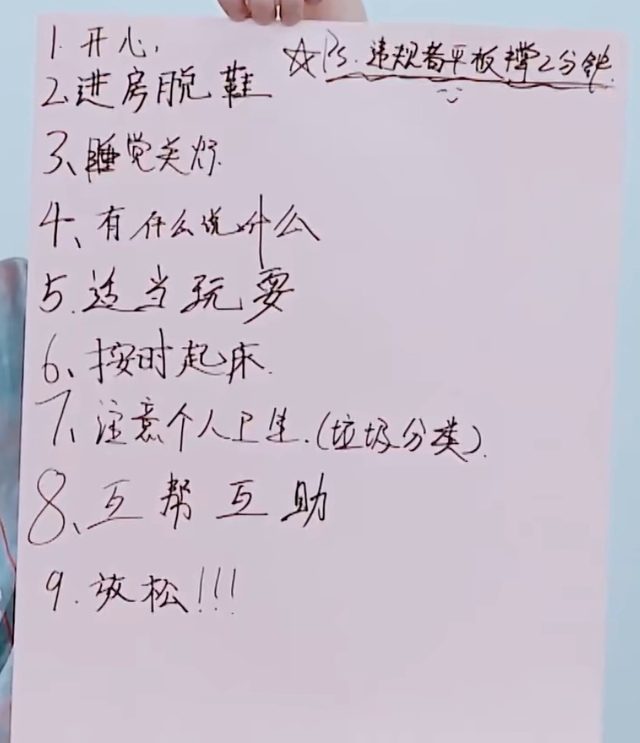 1. 开心.
☆Ps. 违规者平板撑2分钟.
2、进房脱鞋
3、睡觉关灯.
4、有什么说什么
5. 适当玩耍
6、按时起床.
7、注意个人卫生.(垃圾分类).
8、互帮互助
9. 放松!!!